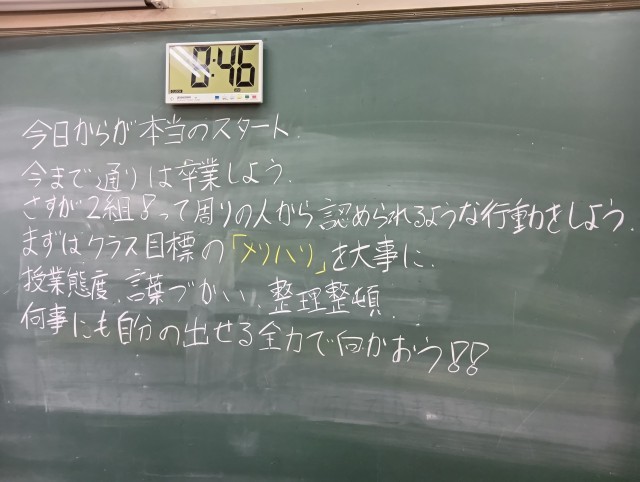 8:46
今日からが本当のスタート.
今まで通りは卒業しよう.
さすが2組!って周りの人から認められるような行動をしよう.
まずはクラス目標の「メリハリ」を大事に.
授業態度、言葉づかい、整理整頓.
何事にも自分の出せる全力で向かおう!!